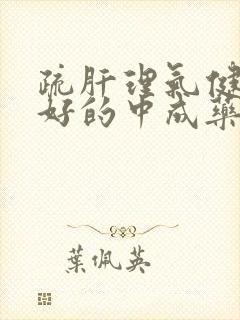 疏肝理氣健
好的中成藥
葉佩英